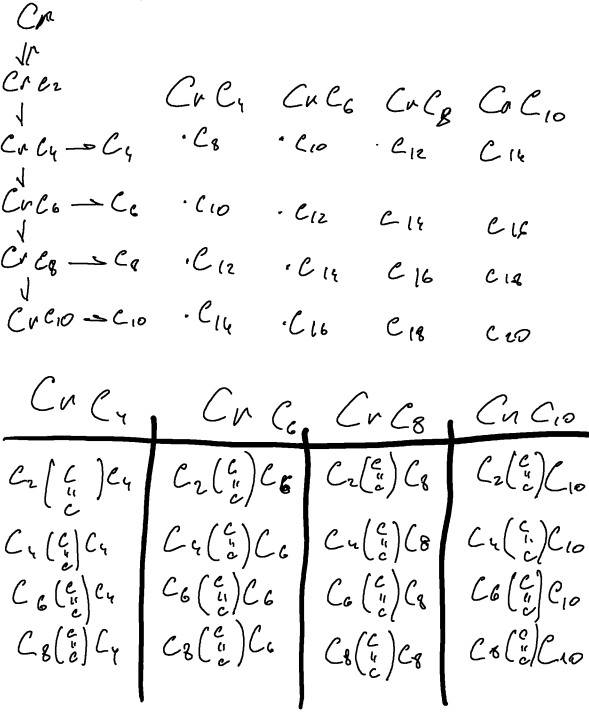 Cr
⇌
CrC2
↓
CrC4 → C4
↓
CrC6 → C6
↓
CrC8 → C8
↓
CrC10 → C10
CrC4 CrC6 CrC8 CrC10
·C8 ·C10 ·C12 C14
·C10 ·C12 C14 C16
·C12 ·C14 C16 C18
·C14 ·C16 C18 C20
CrC4 CrC6 CrC8 CrC10
C2(C=C)C4 C2(C=C)C6 C2(C=C)C8 C2(C=C)C10
C4(C=C)C4 C4(C=C)C6 C4(C=C)C8 C4(C=C)C10
C6(C=C)C4 C6(C=C)C6 C6(C=C)C8 C6(C=C)C10
C8(C=C)C4 C8(C=C)C6 C8(C=C)C8 C8(C=C)C10